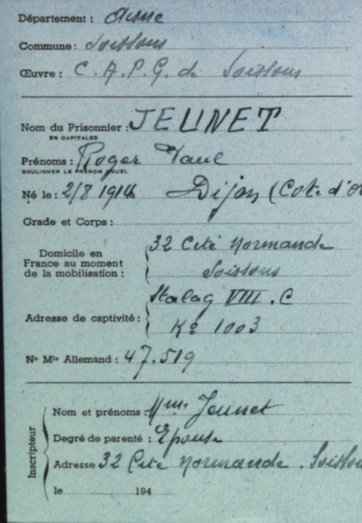 Département : Aisne
Commune : Soissons
Œuvre : C. A. P. G. de Soissons
Nom du Prisonnier : JEUNET
EN CAPITALES
Prénoms : Roger Paul
SOULIGNER LE PRÉNOM USUEL
Né le : 2/8 1914 Dijon (Cote d'or
Grade et Corps :
Domicile en
France au moment
de la mobilisation :
32 Cité Normande
Soissons
Adresse de captivité :
Stalag VIII. C
Kº 1003
Nº Mle Allemand : 47.519
Inscripteur
Nom et prénoms : Mme Jeunet
Degré de parenté : Epouse
Adresse 32 Cité Normande. Soissons
le 194